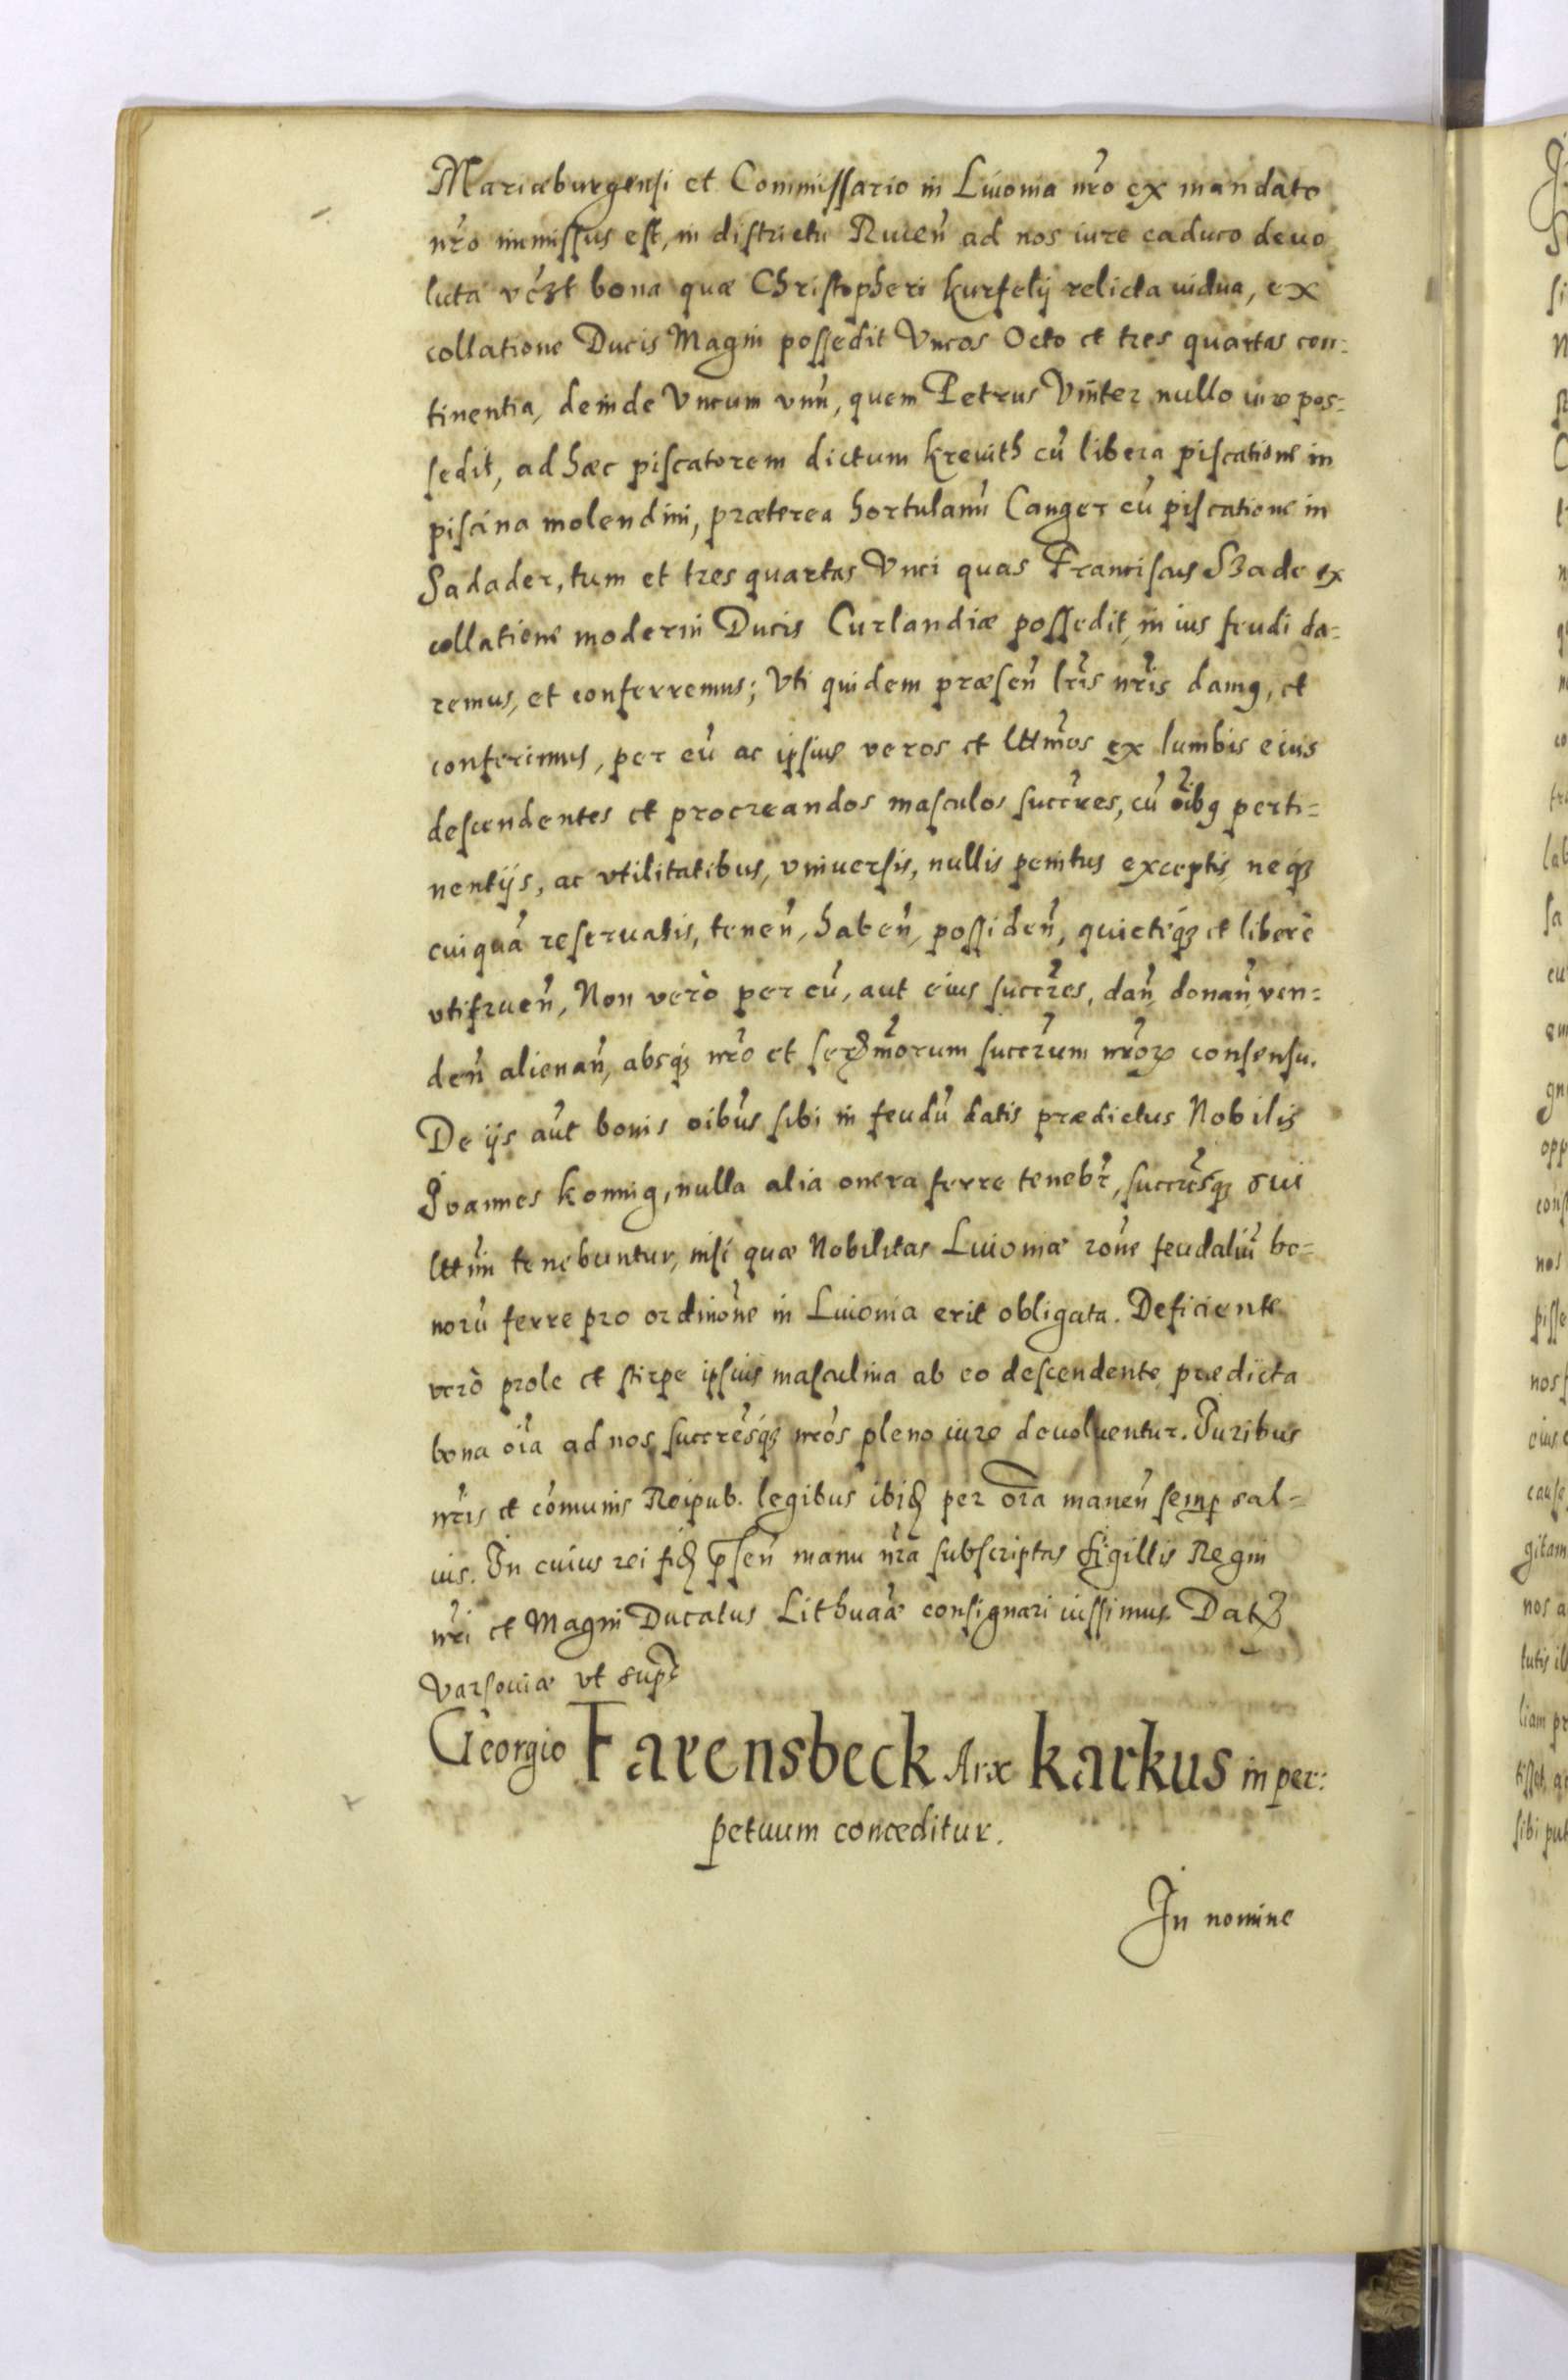 Mariæburgensi et Commissario in Liuonia nr̃o ex mandato
nr̃o immissus est, in districtu Ruień ad nos iure caduco deuo
luta bona quæ Christopheri kurselij relicta uidua, ex
collatione Ducis Magni possedit Vncos Octo et tres quartas con:
tinentia, deinde Vncum vnū, quem Petrus Vinter nullo iure pos:
sedit, ad hæc piscatorem dictum kreuith cū libera piscatione in
piscina molendini, præterea hortulanū Canger cū piscatione in
Sadader, tum et tres quartas Vnci quas Franciscus Szade ex
collatione moderni Ducis Curlandiæ possedit, in ius feudi da=
remus, et conferremus; Vti quidem præseń lr̃is nr̃is damq, et
conferimus, per eū ac ipsius veros et lttm̃os ex lumbis eius
descendentes et procreandos masculos succr̃es, cū oĩbq perti=
nentijs, ac vtilitatibus, vniuersis, nullis penitus exceptis, neq3
cuiquā reseruatis, teneń, habeń, possideń, quietéq3 et liberè
vtifrueń, Non verò per eū, aut eius succr̃es, dań, donań, ven=
deń alienań, absq3 nr̃o et serm̃orum succr̃um nr̃or consensu.
De ijs aūt bonis oib̃us sibi in feudū datis prædictus Nobilis
Joannes konnig, nulla alia onera ferre tenebr̃, succr̃esq3 sui
lttimi tenebuntur, nisi quæ Nobilitas Liuoniæ rõne feudaliū bo=
norū ferre pro ordinõne in Liuonia erit obligata. Deficiente
verò prole et stirpe ipsius masculina ab eo descendente prædicta
bona oĩa ad nos succr̃esq3 nr̃os pleno iure deuoluentur. Juribus
nr̃is et com̃unis Reipub. legibus ibid per oĩa maneń semp sal=
uis. In cuius rei fid p̃seń manu nr̃a subscriptas sigillis Regni
nr̃i et Magni Ducatus Lithuaæ consignari iussimus. Dat
Varsouiæ vt supr̃
Georgio Farensbeck Arx karkus in per:
petuum conceditur.
In nomine